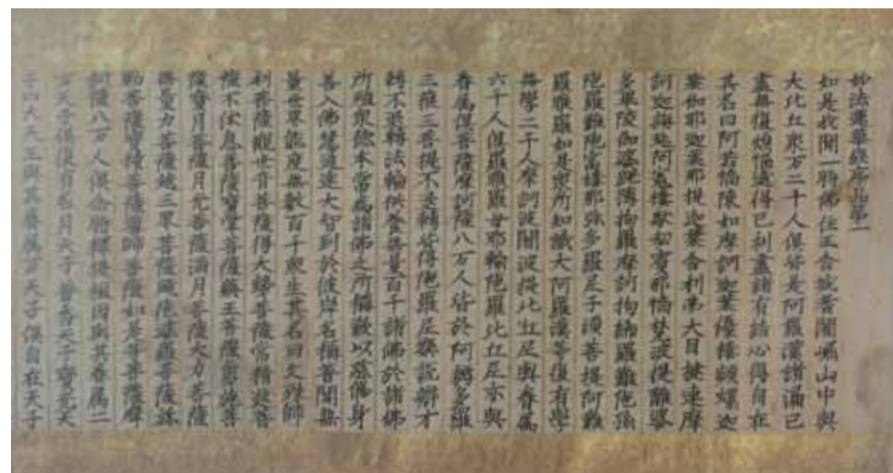 妙法蓮華經序品第一
如是我聞一時佛住王舍城耆闍崛山中與
大比丘衆万二千人俱皆是阿羅漢諸漏已
盡無復煩惱逮得己利盡諸有結心得自在
其名曰阿若憍陳如摩訶迦葉優樓頻螺迦
葉伽耶迦葉那提迦葉舍利弗大目揵連摩
訶迦旃延阿㝹樓馱劫賓那憍梵波提離婆
多畢陵伽婆蹉薄拘羅摩訶拘絺羅難陁孫
陁羅難陁富樓那弥多羅尼子湏菩提阿難
羅睺羅如是衆所知識大阿羅漢等復有學
無學二千人摩訶波闍波提比丘尼與眷属
六千人俱羅睺羅母耶輸陁羅比丘尼亦與
眷属俱菩薩摩訶薩八万人皆於阿耨多羅
三藐三菩提不退轉皆得陁羅尼樂說辯才
轉不退轉法輪供養無量百千諸佛於諸佛
所殖衆德本常爲諸佛之所稱歎以慈脩身
善入佛慧通達大智到於彼岸名稱普聞無
量世界能度無數百千衆生其名曰文殊師
利菩薩觀世音菩薩得大勢菩薩常精進菩
薩不休息菩薩寶掌菩薩藥王菩薩勇施菩
薩寶月菩薩月光菩薩滿月菩薩大力菩薩
無量力菩薩越三界菩薩颰陁婆羅菩薩弥
勒菩薩寶積菩薩導師菩薩如是等菩薩摩
訶薩八万人俱尒時釋提桓因與其眷属二
万天子俱復有名月天子普香天子寶光天
子四大天王與其眷属万天子俱自在天子